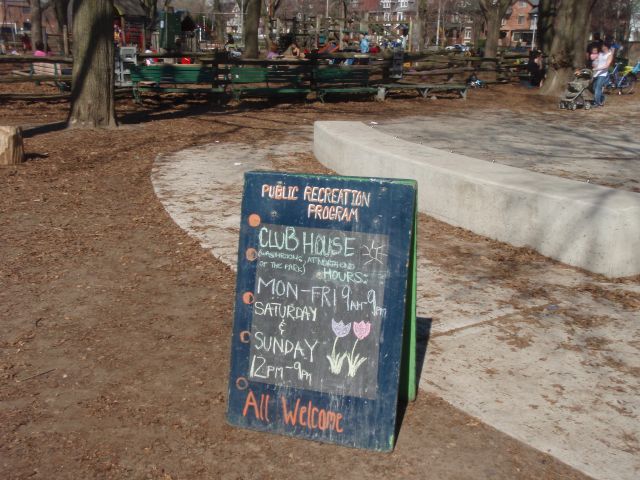 PUBLIC RECREATION
PROGRAM
CLUB HOUSE
(WASHROOMS, AT NORTH END
OF THE PARK)
HOURS:
MON-FRI 9AM-9PM
SATURDAY
&
SUNDAY
12PM-9PM
All Welcome